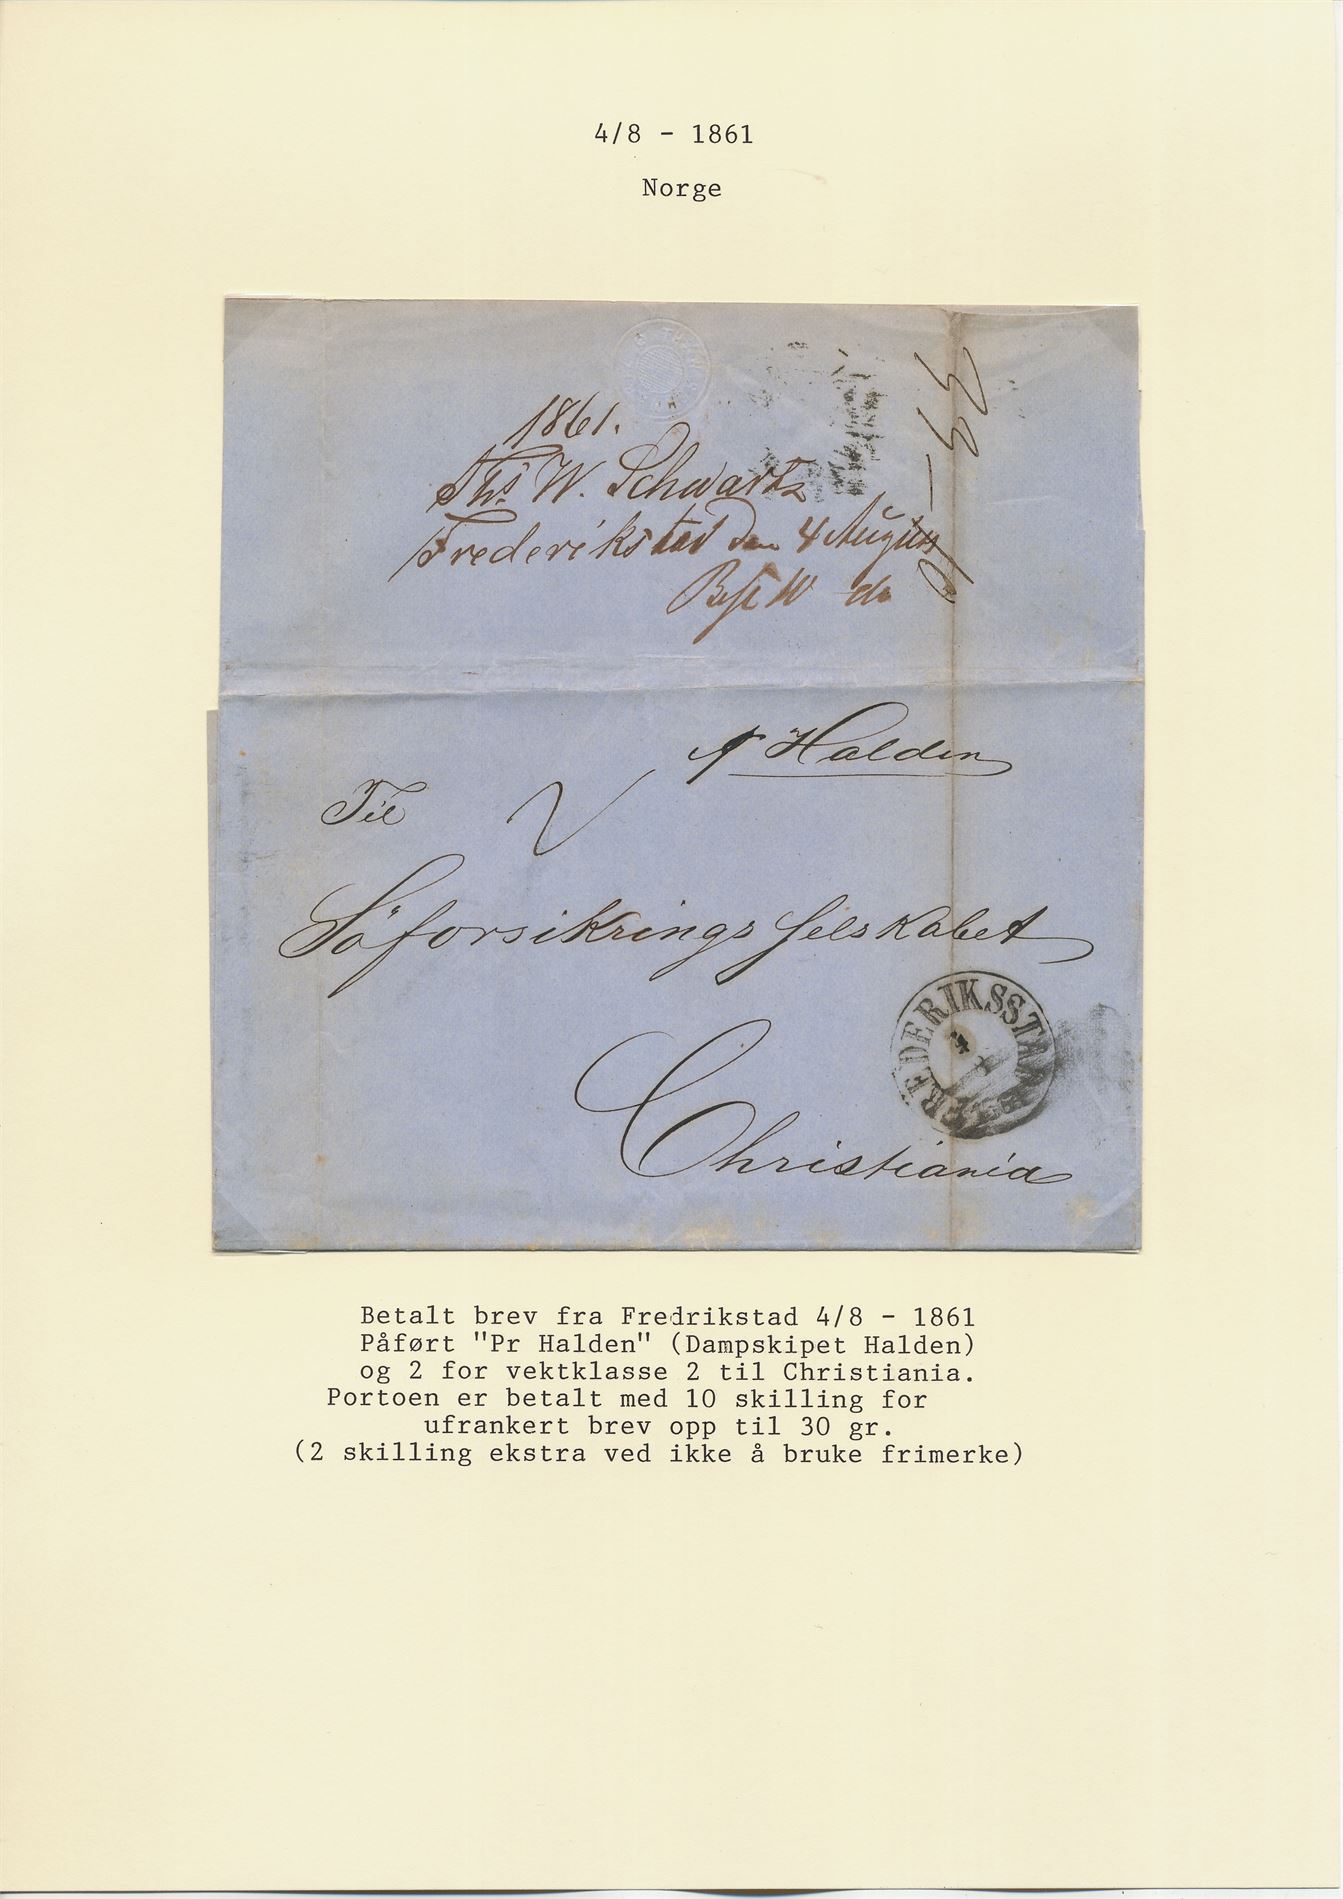 4/8 - 1861
Norge
1861.
Ths. W. Schwartz
Frederikstad den 4 August
10 do
pr Halden
Til
2
Söforsikrings Selskabet
FREDERIKSSTAD
4
8
Christiania
Betalt brev fra Fredrikstad 4/8 - 1861
Påført "Pr Halden" (Dampskipet Halden)
og 2 for vektklasse 2 til Christiania.
Portoen er betalt med 10 skilling for
ufrankert brev opp til 30 gr.
(2 skilling ekstra ved ikke å bruke frimerke)